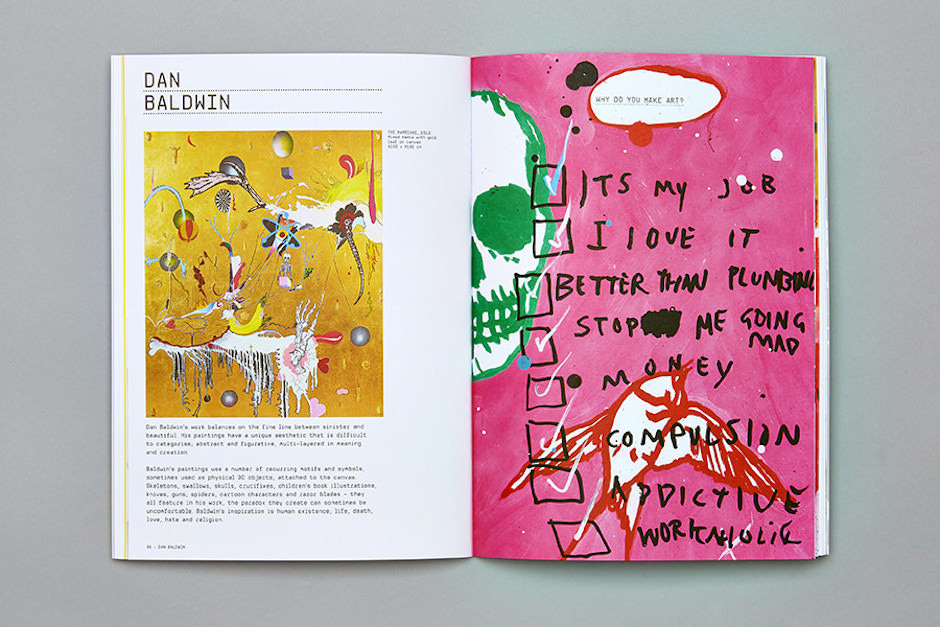 DAN
BALDWIN
THE MARRIAGE, 2010
Mixed media with gold
leaf on canvas
Dan Baldwin's work balances on the fine line between sinister and
beautiful. His paintings have a unique aesthetic that is difficult
to categorise; abstract and figurative, multi-layered in meaning
and creation.
Baldwin's paintings use a number of recurring motifs and symbols,
sometimes used as physical 3D objects, attached to the canvas.
Skeletons, swallows, skulls, crucifixes, children's book illustrations,
knives, guns, spiders, cartoon characters and razor blades – they
all feature in his work, the paradox they create can sometimes be
uncomfortable. Baldwin's inspiration is human existence; life, death,
love, hate and religion.
96 – DAN BALDWIN
WHY DO YOU MAKE ART?
ITS MY JOB
I LOVE IT
BETTER THAN PLUMBING
STOP ME GOING
MAD
MONEY
COMPULSION
ADDICTIVE
WORKHOLIC